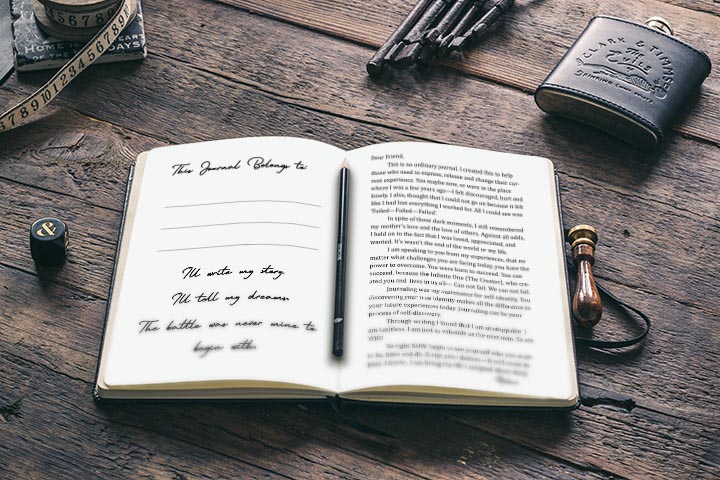 This Journal Belongs to:
I'll write my story.
I'll tell my dreams.
The battle was never mine to
begin with.
Dear Friend,
This is no ordinary journal. I created this to help
those who need to expose, release and change their cur-
rent experience. You maybe now, or were in the place
where I was a few years ago—I felt discouraged, hurt and
lonely. I also, thought that I could not go on because it felt
like I had lost everything I worked for. All I could see was
'Failed—Failed—Failed!'
In spite of those dark moments, I still remembered
my mother's love and the love of others. Against all odds,
I held on to the fact that I was loved, appreciated, and
wanted. It's wasn't the end of the world or my life.
I am speaking to you from my experiences, that no
matter what challenges you are facing today, you have the
power to overcome. You were born to succeed. You can
succeed, because the Infinite One (The Creator), who cre-
ated you and lives in us all— Can not fail. We can not fail.
Journaling was my sustenance for self-identity. You
discovering your true identity makes all the difference to
your future experiences today. Journaling can be your
process of self-discovery.
Through writing I found that I am unstoppable. I
am limitless. I am just as valuable as the next man. So are
YOU!
So right NOW begin to see yourself who you want
to be, have and do. Script your desires—it will come to
CLARK & TIMMS
The
&